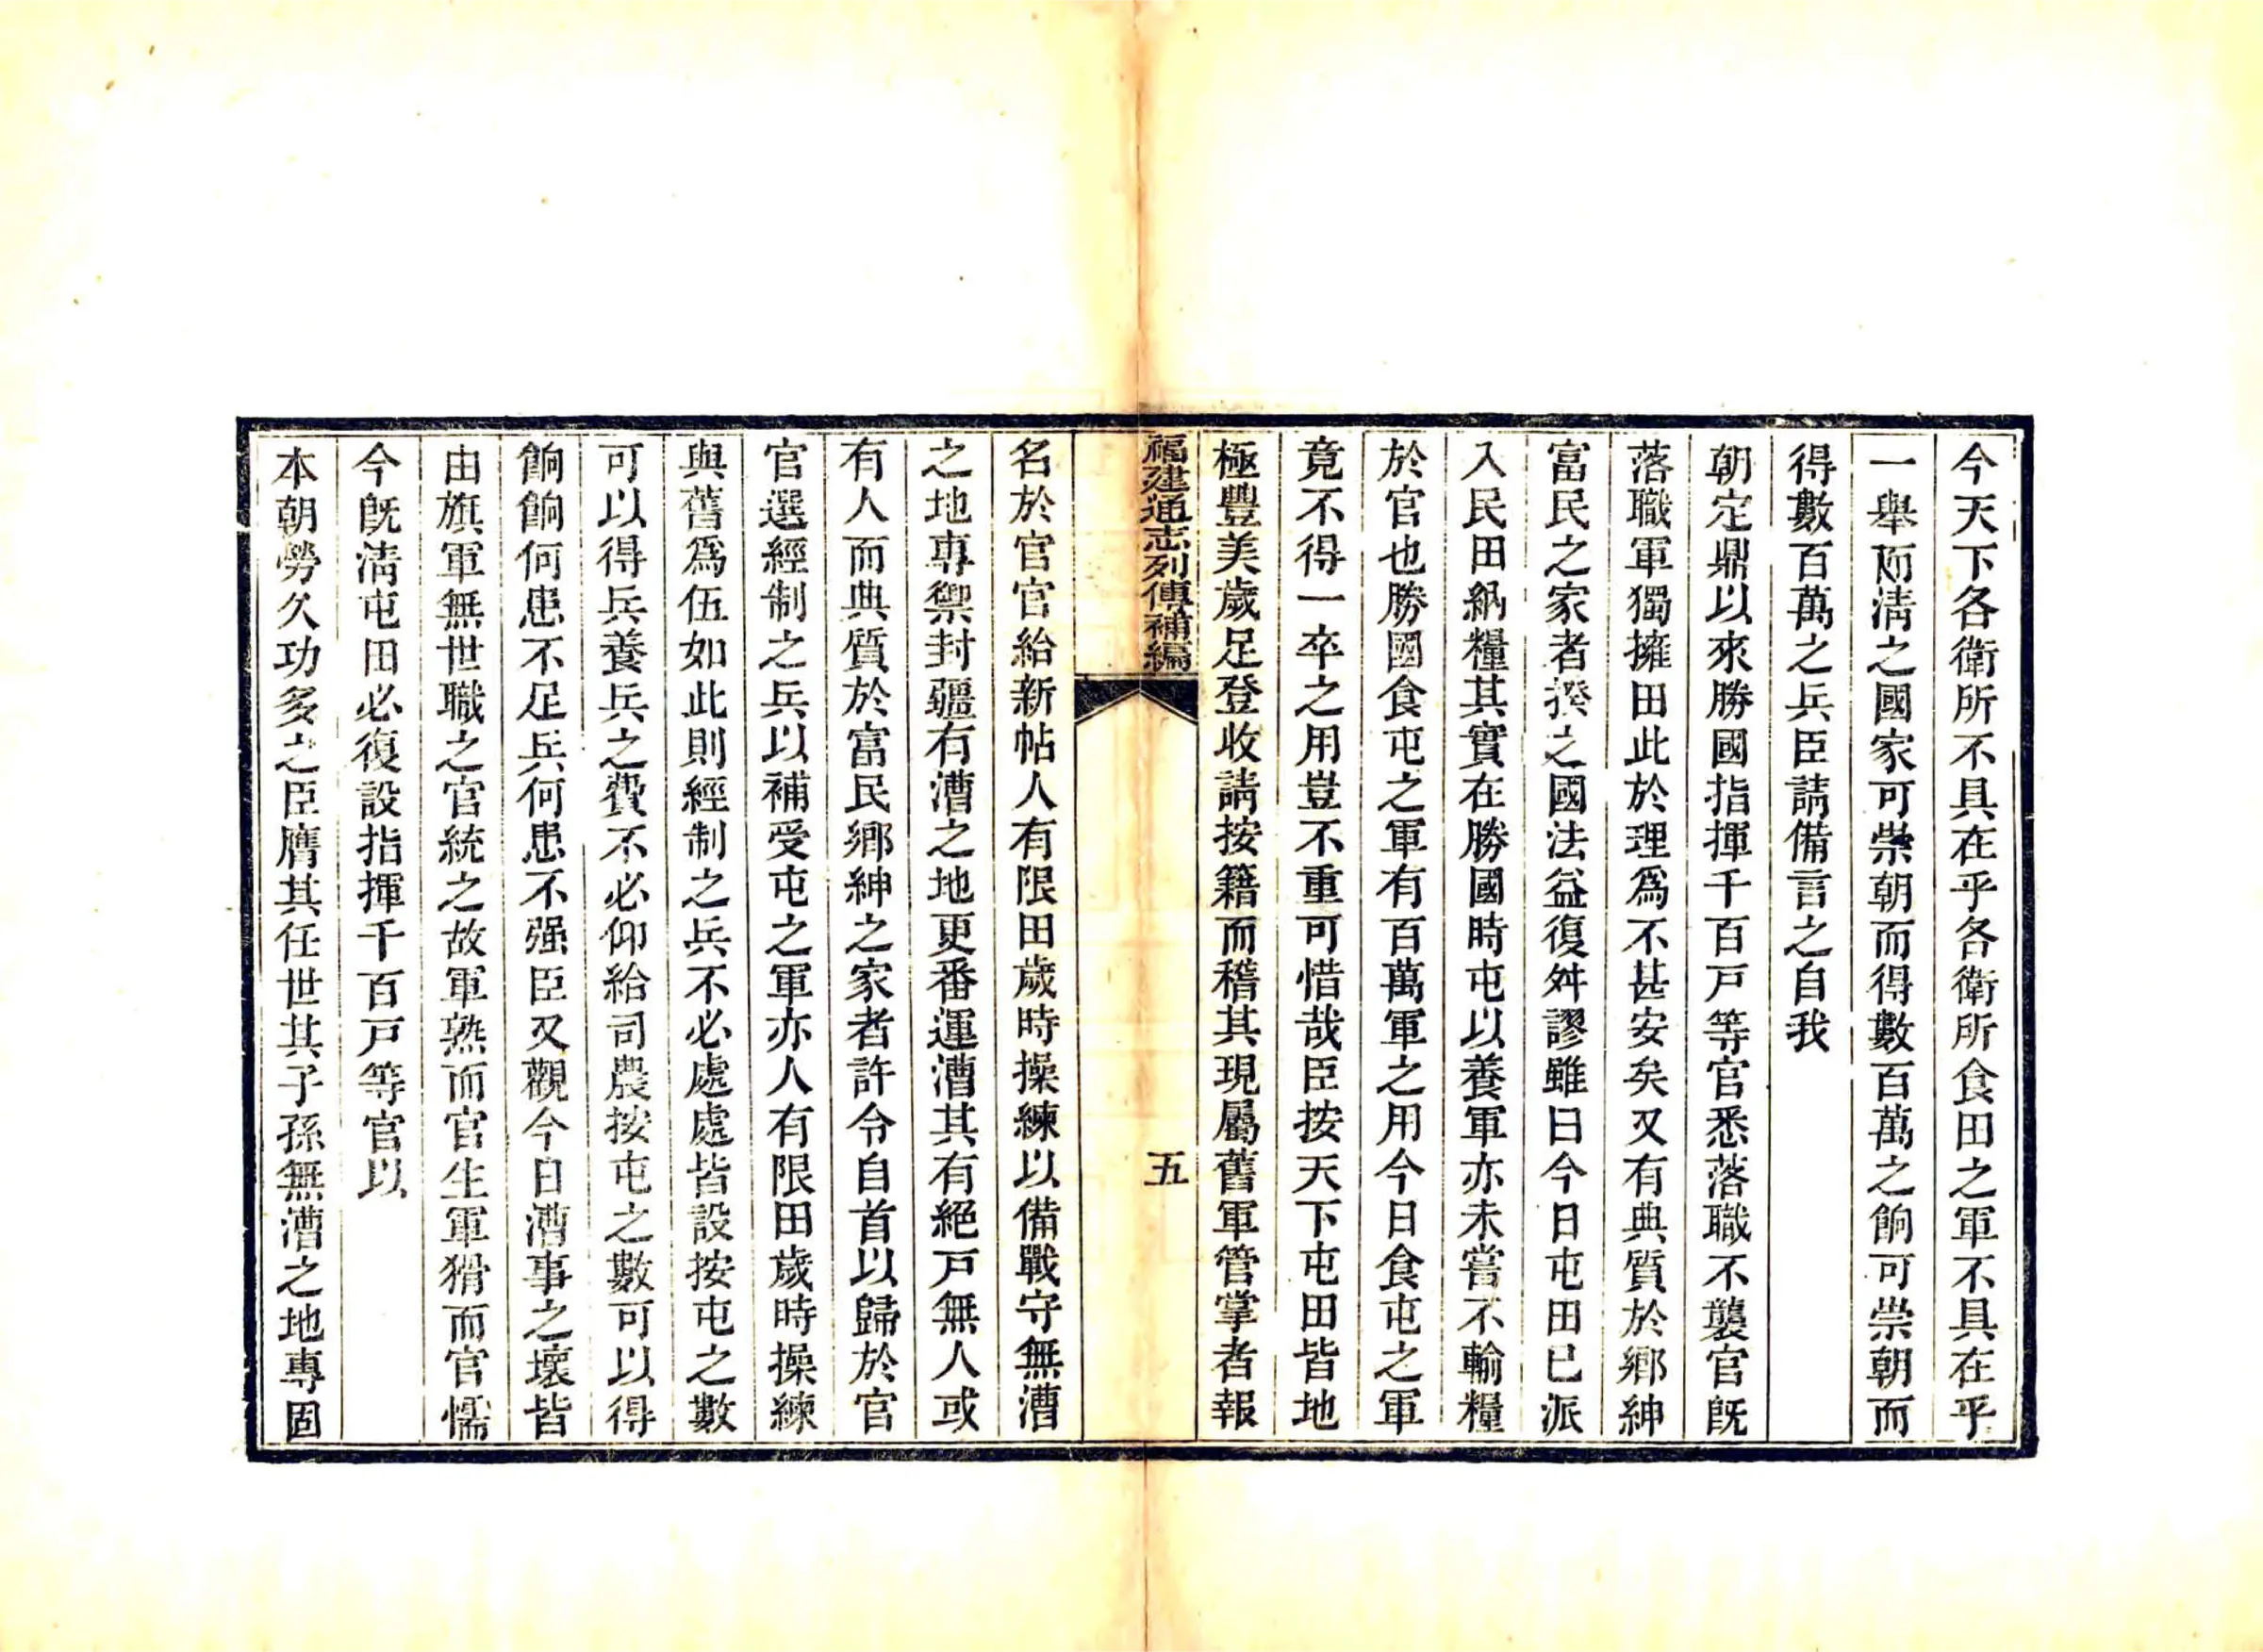 今天下各衛所不具在乎各衛所食田之軍不具在乎
一舉而清之國家可崇朝而得數百萬之餉可崇朝而
得數百萬之兵臣請備言之自我
朝定鼎以來勝國指揮千百戸等官悉落職不襲官旣
落職軍獨擁田此於理爲不甚安矣又有典質於鄉紳
富民之家者揆之國法益復舛謬雖曰今日屯田已派
入民田納糧其實在勝國時屯以養軍亦未嘗不輸糧
於官也勝國食屯之軍有百萬軍之用今日食屯之軍
竟不得一卒之用豈不重可惜哉臣按天下屯田皆地
極豐美歲足登收請按籍而稽其現屬舊軍管掌者報
福建通志列傳補編
五
名於官官給新帖人有限田歲時操練以備戰守無漕
之地專禦封疆有漕之地更番運漕其有絕戸無人或
有人而典質於富民鄉紳之家者許令自首以歸於官
官選經制之兵以補受屯之軍亦人有限田歲時操練
與舊爲伍如此則經制之兵不必處處皆設按屯之數
可以得兵養兵之費不必仰給司農按屯之數可以得
餉餉何患不足兵何患不强臣又觀今日漕事之壞皆
由旗軍無世職之官統之故軍熟而官生軍猾而官懦
今旣淸屯田必復設指揮千百戸等官以
本朝勞久功多之臣膺其任世其子孫無漕之地專固